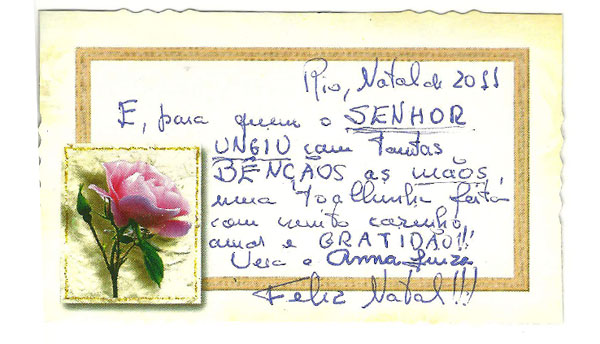 Rio, Natal de 2011
E, para quem o SENHOR
UNGIU com tantas
BÊNÇÃOS as mãos,
uma toalhinha feita
com muito carinho,
amor e GRATIDÃO!!!
Vera e Anna Luiza
Feliz Natal!!!